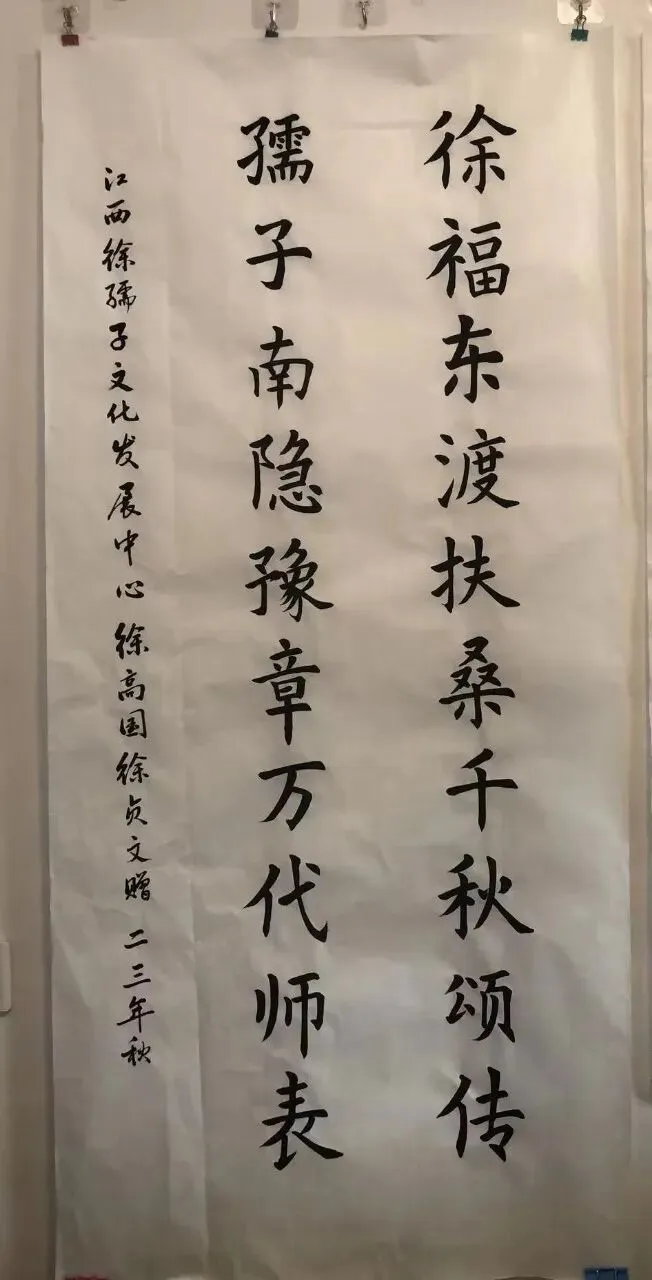 徐福东渡扶桑千秋颂传
孺子南隐豫章万代师表
江西徐孺子文化发展中心 徐高国徐贞文赠 二三年秋